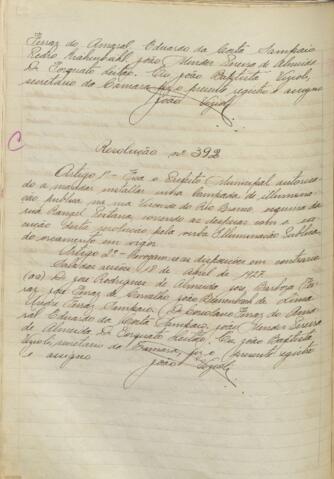 Ferraz do Amaral, Eduardo da Costa Sampaio
Pedro Krahenbuhl, João Mendes Pereira de Almeida
Dr Torquato Leitão. Eu João Baptista Vizioli,
secretario da Camara fiz o presente registro e assigno
João Vizioli
Resolução nº 392
Artigo 1º - Fica o Prefeito Municipal autorisa-
do a mandar installar uma lampada de illumina-
ção publica na rua Visconde do Rio Branco, esquina da
rua Rangel Pestana, correndo as despesas com a exe-
cução desta resolução pela verba Illuminação Publica,
do orçamento em vigor.
Artigo 2º - Revogam-se as disposições em contrario
Sala das sessões, 18 de April de 1927.
(aa) Dr José Rodrigues de Almeida, José Barboza Fer-
raz, José Ferraz de Carvalho, João Blumenthal de Lima
André Ferraz Sampaio, Dr Coriolano Ferraz do Ama-
ral, Eduardo da Costa Sampaio, João Mendes Pereira
de Almeida, Dr Torquato Leitão. Eu, João Baptista
Vizioli, secretario da Camara, fiz o presente registro
e assigno
João Vizioli